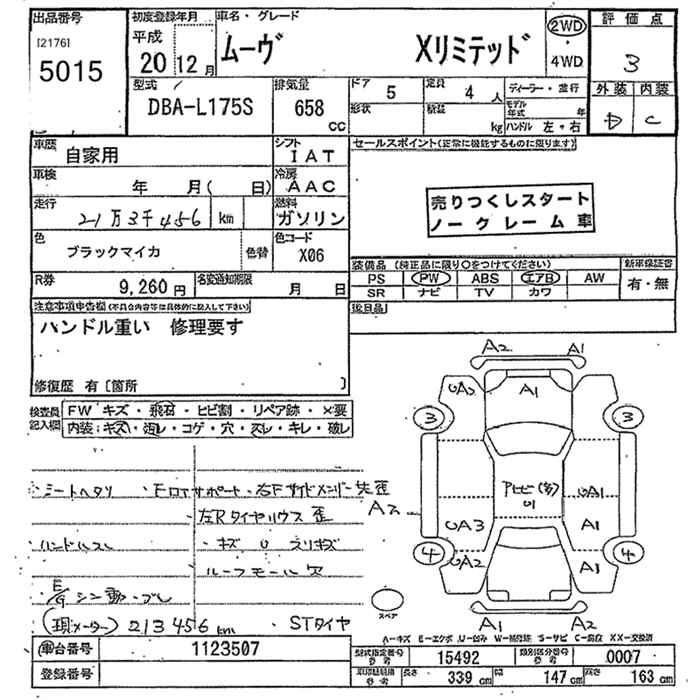 出品番号
[2176]
5015
初度登録年月
平成
20 12月
車名・グレード
ムーヴ Xリミテッド
2WD
・
4WD
評価点
3
外装 内装
D C
型式
DBA-L175S
排気量
658
CC
ドア
5
形状
定員
4 人
積載
kg
ディーラー・並行
モデル年式 年
ハンドル 左・右
車歴
自家用
シフト
IAT
車検
年 月( 日)
冷房
AAC
走行
21万3千456 km
燃料
ガソリン
色
ブラックマイカ
色替
色コード
X06
R券
9,260円
名変通知期限
月 日
セールスポイント(正常に機能するものに限ります)
売りつくしスタート
ノークレーム車
装備品 (純正品に限り○をつけてください)
新車保証書
PS PW ABS エアB AW
有・無
SR ナビ TV カワ
後日品
注意事項申告欄(不具合内容等は具体的に記入して下さい)
ハンドル重い 修理要す
修復歴 有〔箇所 〕
検査員記入欄
FW キズ・飛石・ヒビ割・リペア跡・×要
内装:キズ・汚レ・コゲ・穴・スレ・キレ・破レ
シートヘタリ
・FロアサポートF・右Fサイドメンバー先歪
左Rタイヤハウス歪
ハンドルスレ
・キズ U スリキズ
ルーフモール欠
E/Gシン動・ブレ
(現メーター) 213456km
・STタイヤ
A2 A1
UA2 A1
3 3
アトヒビ(多)
U1
A2
UA1
UA3 A1
4 4
UA2 A1
A1 A2
スペア
A-キズ E-エクボ U-凹み W-補修跡 S-サビ C-腐蝕 XX-交換済
車台番号
1123507
登録番号
型式指定番号
参考
15492
類別区分番号
参考
0007
車両諸規格
参考
長さ 339cm 幅 147cm 高さ 163cm